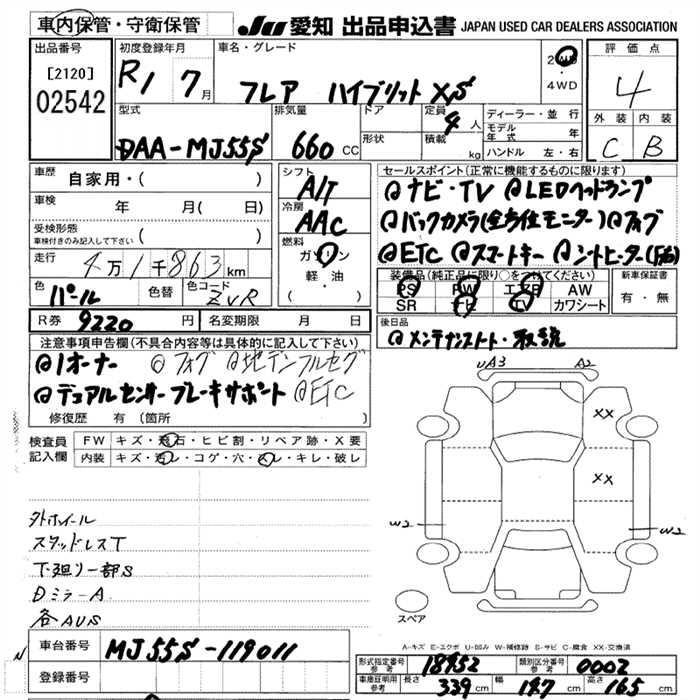 車内保管・守衛保管 JU 愛知 出品申込書 JAPAN USED CAR DEALERS ASSOCIATION
出品番号 初度登録年月 車名・グレード 2WD・4WD 評価点
[2120] 02542 R1 7月 フレア ハイブリット XS 4
型式 排気量 ドア 定員 4人 ディーラー・並行 外装 内装
DAA-MJ55S 660 CC 形状 積載 kg モデル年式 年 C B
ハンドル 左・右
車歴 自家用・( ) シフト A/T セールスポイント(正常に機能するものに限ります)
車検 年 月( 日) 冷房 AAC @ナビ・TV @LEDヘッドランプ
受検形態 @バックカメラ(全方位モニター) @フォグ
車検付きのみ記入して下さい ( ) 燃料 ガソリン @ETC @スマートキー @シートヒーター
走行 4万1千863km 軽・油 装備品(純正品に限り○をつけてください) 新車保証書
色 パール 色替 色コード ZVR ( ) PS PW エアB AW 有・無
SR ナビ TV カワシート
R券 9220円 名変期限 月 日 後日品
注意事項申告欄(不具合内容等は具体的に記入して下さい) @メンテナンスノート・取説
@1オーナー @フォグ @地デジフルセグ
@デュアルセンサーブレーキサポート @ETC
修復歴 有(箇所 )
検査員記入欄 FW キズ・飛石・ヒビ割・リペア跡・X要
内装 キズ・汚レ・コゲ・穴・スレ・キレ・破レ
UA3 A2
XX
XX
W2 W2
外ホイール
スタッドレスT
下廻り一部S
DミラーA
各AUS
スペア
A-キズ E-エクボ U-凹み W-補修跡 S-サビ C-腐食 XX-交換済
車台番号 MJ55S-119011 形式指定番号 参考 18952 類別区分番号 参考 0002
登録番号 車庫証明用 参考 長さ 339cm 幅 147cm 高さ 165cm